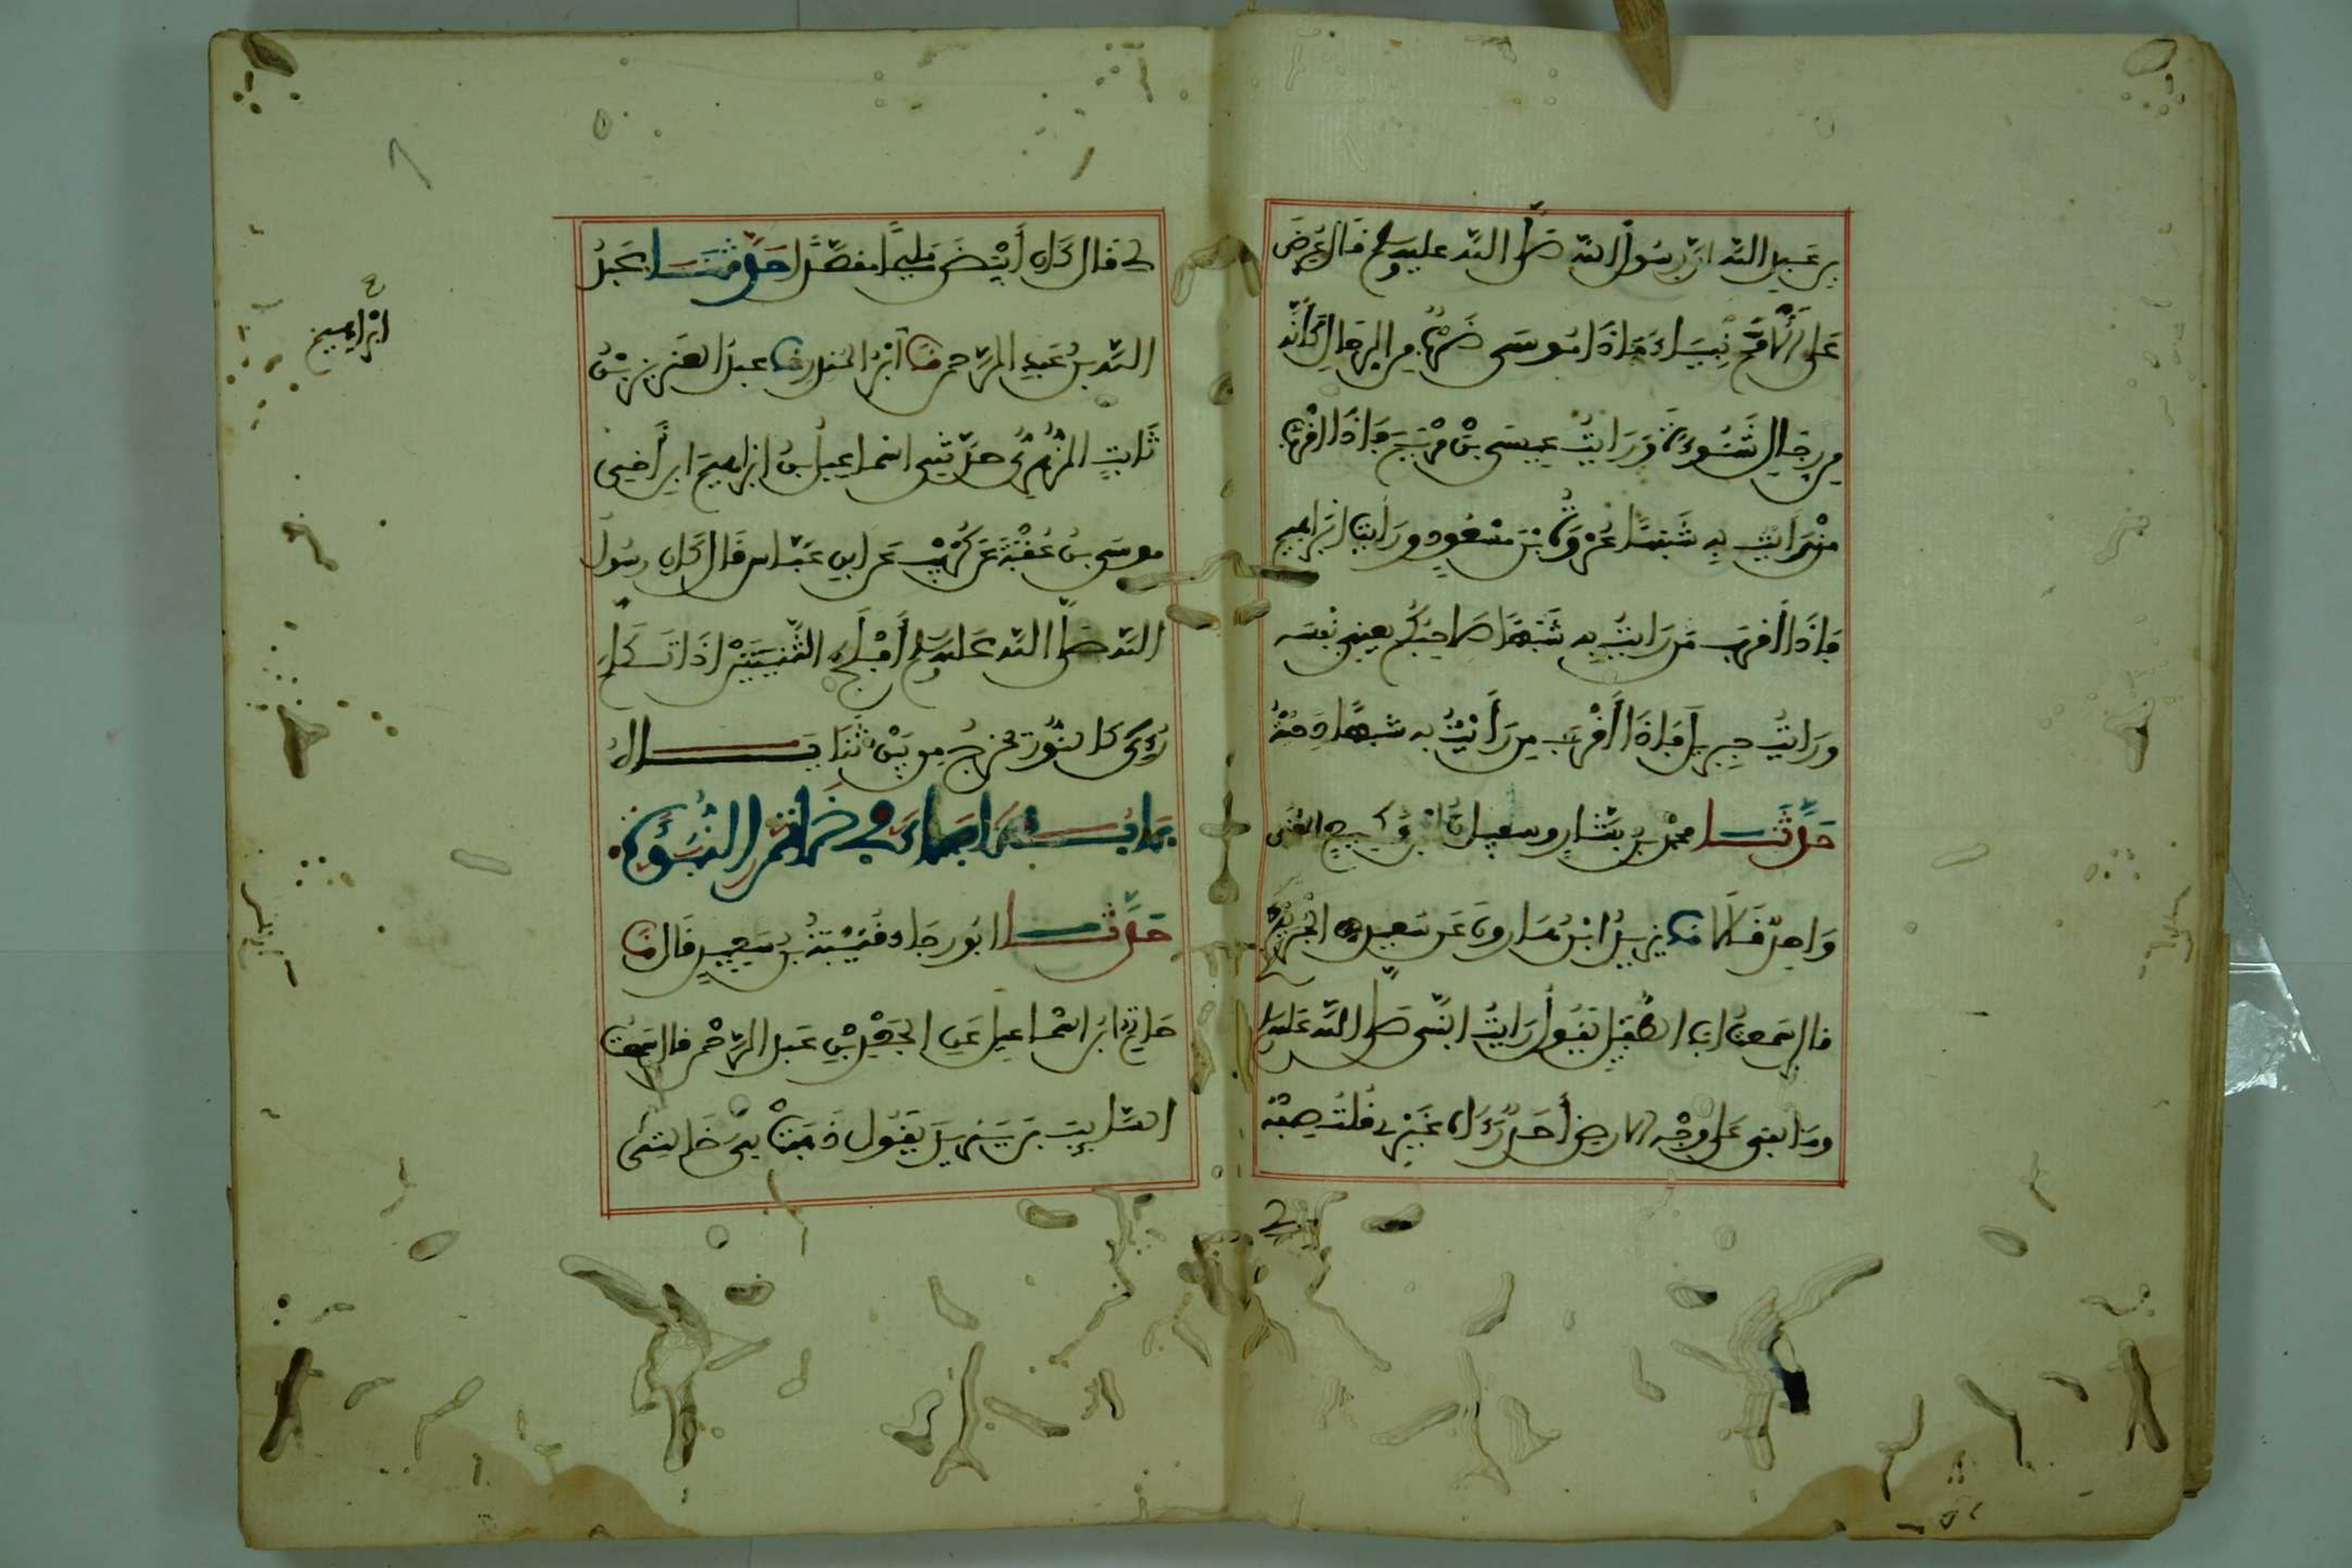 بن عبد الله ان رسول الله صلى الله عليه وسلم قال عرض
على الانبياء فاذا موسى ضرب من الرجال كانه
من رجال شنوءة ورايت عيسى بن مريم فاذا اقرب
من رايت به شبها عروة بن مسعود ورايت ابراهيم
فاذا اقرب من رايت به شبها صاحبكم يعني نفسه
ورايت جبريل فاذا اقرب من رايت به شبها دحية
حدثنا محمد بن بشار وسفيان بن وكيع المعنى
واحد قالا نا يزيد ابن هارون عن سعيد الجريري
قال سمعت ابا الطفيل يقول رايت النبي صلى الله عليه
وما بقي على وجه الارض أحد رءاه غيري قلت صفه
لي قال كان أبيض مليحا مقصدا حدثنا عبد
الله بن عبد الرحمن نا ابراهيم بن المنذر نا عبد العزيز بن
ثابت الزهري حدثني اسماعيل بن ابراهيم ابن أخي
موسى بن عقبة عن كريب عن ابن عباس قال كان رسول
الله صلى الله عليه وسلم أفلج الثنيتين اذا تكلم
رءي كالنور يخرج من بين ثناياه
باب ما جاء في خاتم النبوءة
حدثنا ابو رجاء قتيبة بن سعيد قال نا
حاتم ابن اسماعيل عن الجعد بن عبد الرحمن قال سمعت
السايب بن يزيد يقول ذهبت بي خالتي
ابراهيم